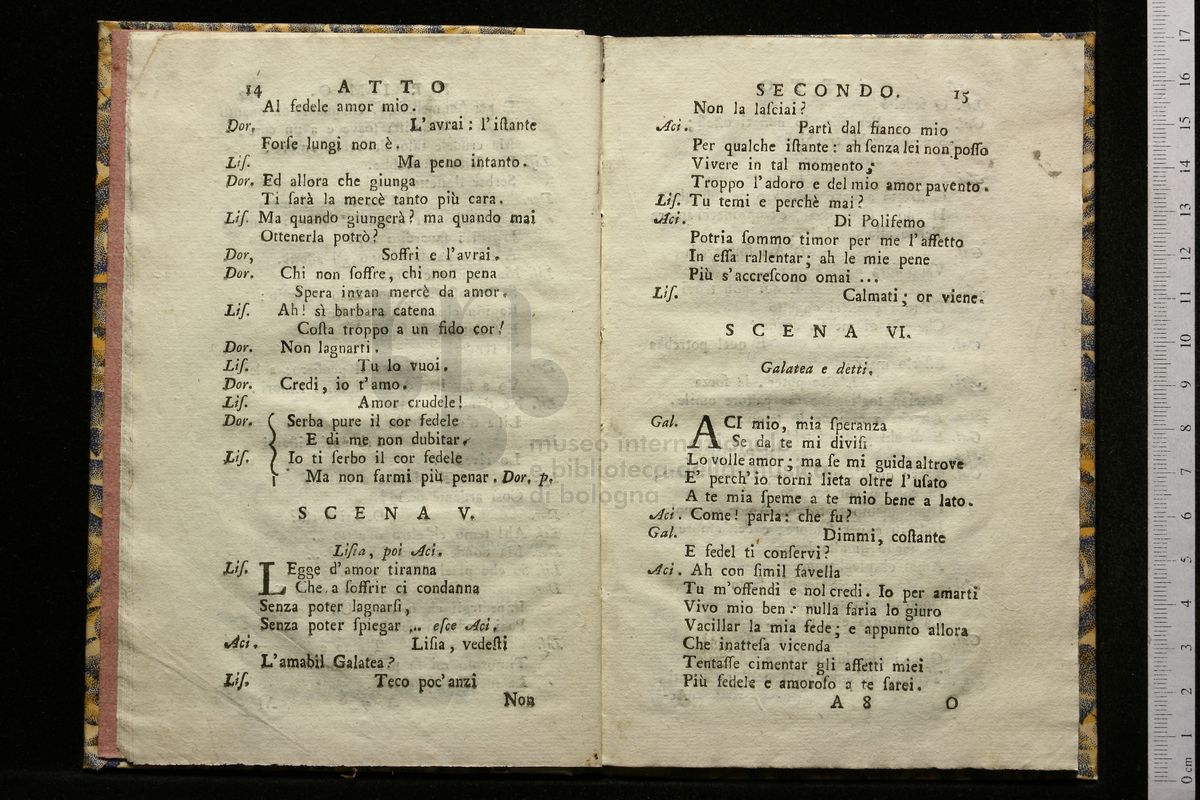 14 ATTO
Al fedele amor mio.
Dor. L'avrai: l'iſtante
Forſe lungi non è.
Liſ. Ma peno intanto.
Dor. Ed allora che giunga
Ti ſarà la mercè tanto più cara.
Liſ. Ma quando giungerà? ma quando mai
Ottenerla potrò?
Dor, Soffri e l'avrai.
Dor. Chi non ſoffre, chi non pena
Spera invan mercè da amor.
Liſ. Ah! sì barbara catena
Coſta troppo a un fido cor!
Dor. Non lagnarti.
Liſ. Tu lo vuoi.
Dor. Credi, io t'amo.
Liſ. Amor crudele!
Dor. Serba pure il cor fedele
E di me non dubitar.
Liſ. Io ti ſerbo il cor fedele
Ma non farmi più penar. Dor. p.
SCENA V.
Liſia, poi Aci.
Liſ. LEgge d'amor tiranna
Che a ſoffrir ci condanna
Senza poter lagnarſi,
Senza poter ſpiegar ... eſce Aci.
Aci. Liſia, vedeſti
L'amabil Galatea?
Liſ. Teco poc'anzi
Non
SECONDO. 15
Non la laſciai?
Aci. Partì dal fianco mio
Per qualche iſtante: ah ſenza lei non poſſo
Vivere in tal momento;
Troppo l'adoro e del mio amor pavento.
Liſ. Tu temi e perchè mai?
Aci. Di Polifemo
Potria ſommo timor per me l'affetto
In eſſa rallentar; ah le mie pene
Più s'accreſcono omai ...
Liſ. Calmati; or viene.
SCENA VI.
Galatea e detti.
Gal. ACI mio, mia ſperanza
Se da te mi diviſi
Lo volle amor; ma ſe mi guida altrove
E' perch'io torni lieta oltre l'uſato
A te mia ſpeme a te mio bene a lato.
Aci. Come! parla: che fu?
Gal. Dimmi, coſtante
E fedel ti conſervi?
Aci. Ah con ſimil favella
Tu m'offendi e nol credi. Io per amarti
Vivo mio ben: nulla faria lo giuro
Vacillar la mia fede; e appunto allora
Che inatteſa vicenda
Tentaſſe cimentar gli affetti miei
Più fedele e amoroſo a te ſarei.
A 8 O
museo internazionale
e biblioteca della musica
di bologna
0 cm 1 2 3 4 5 6 7 8 9 10 11 12 13 14 15 16 17